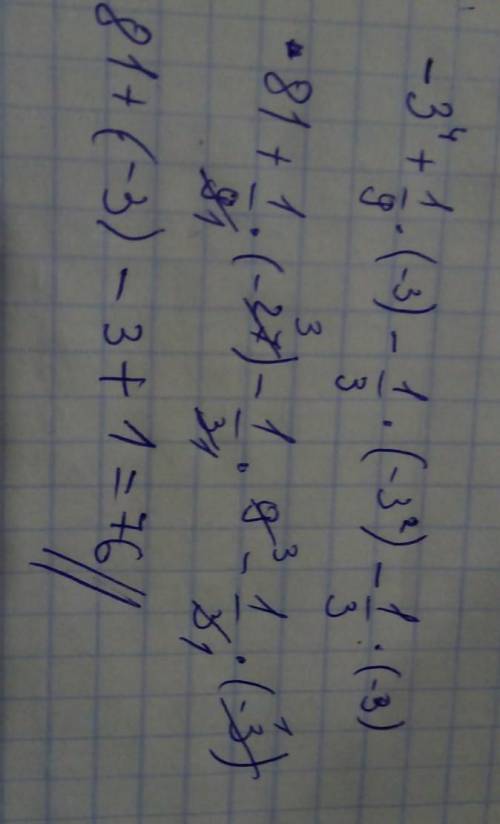 -3⁴ + 1/9 · (-3) - 1/3 · (-3²) - 1/3 · (-3)
81 + 1/9 1 · (-27 3) - 1/3 1 · 9 3 - 1/3 1 · (-3 1)
81 + (-3) - 3 + 1 = 76